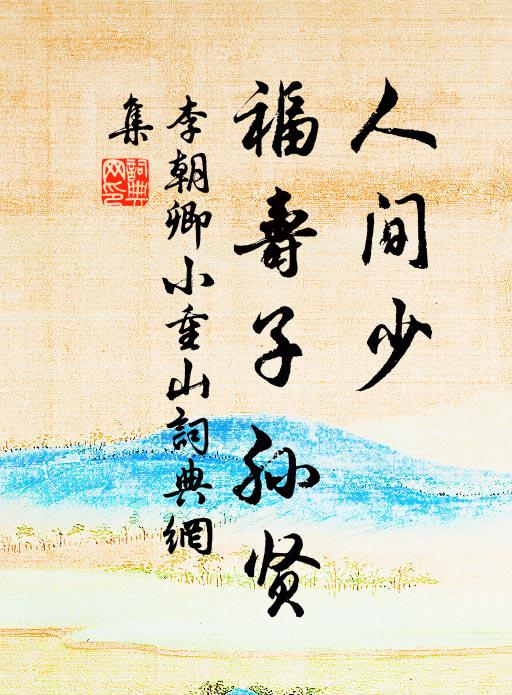 人间少
福寿子孙贤
李朝卿小重山詞典網
集
詞典网印